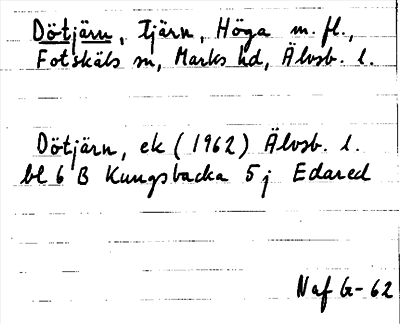 Dötjärn, tjärn, Höga m. fl.,
Fotskäls sn, Marks hd, Älvsb. l.
Dötjärn, ek (1962) Älvsb. l.
bl 6 B Kungsbacka 5 j Edared
Naf G-62